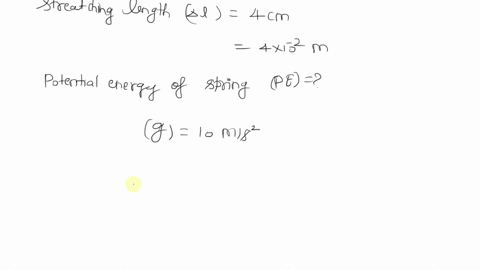 Streatching length (Δl) = 4 cm
= 4×10⁻² m
Potential energy of spring (PE) = ?
(g) = 10 m/s²